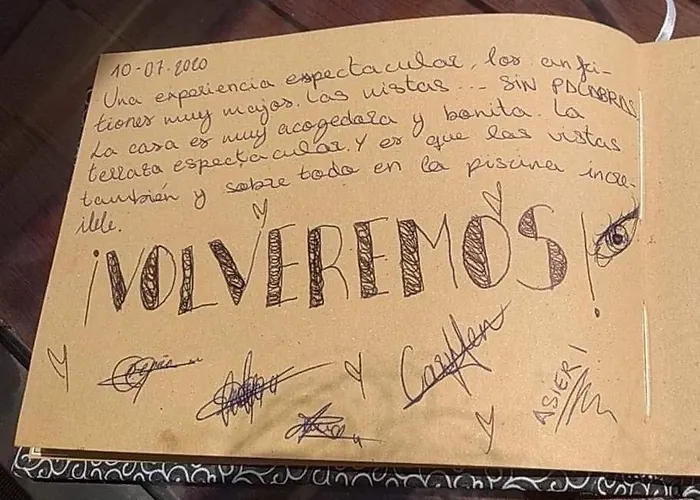 10-07-2020
Una experiencia espectacular, los anfi-
tiones muy majos. Las vistas... SIN PALABRAS
La casa es muy acogedora y bonita. La
terraza espectacular. Y es que las vistas
también y sobre todo en la piscina incre-
íble.
¡VOLVEREMOS!
ASIER!